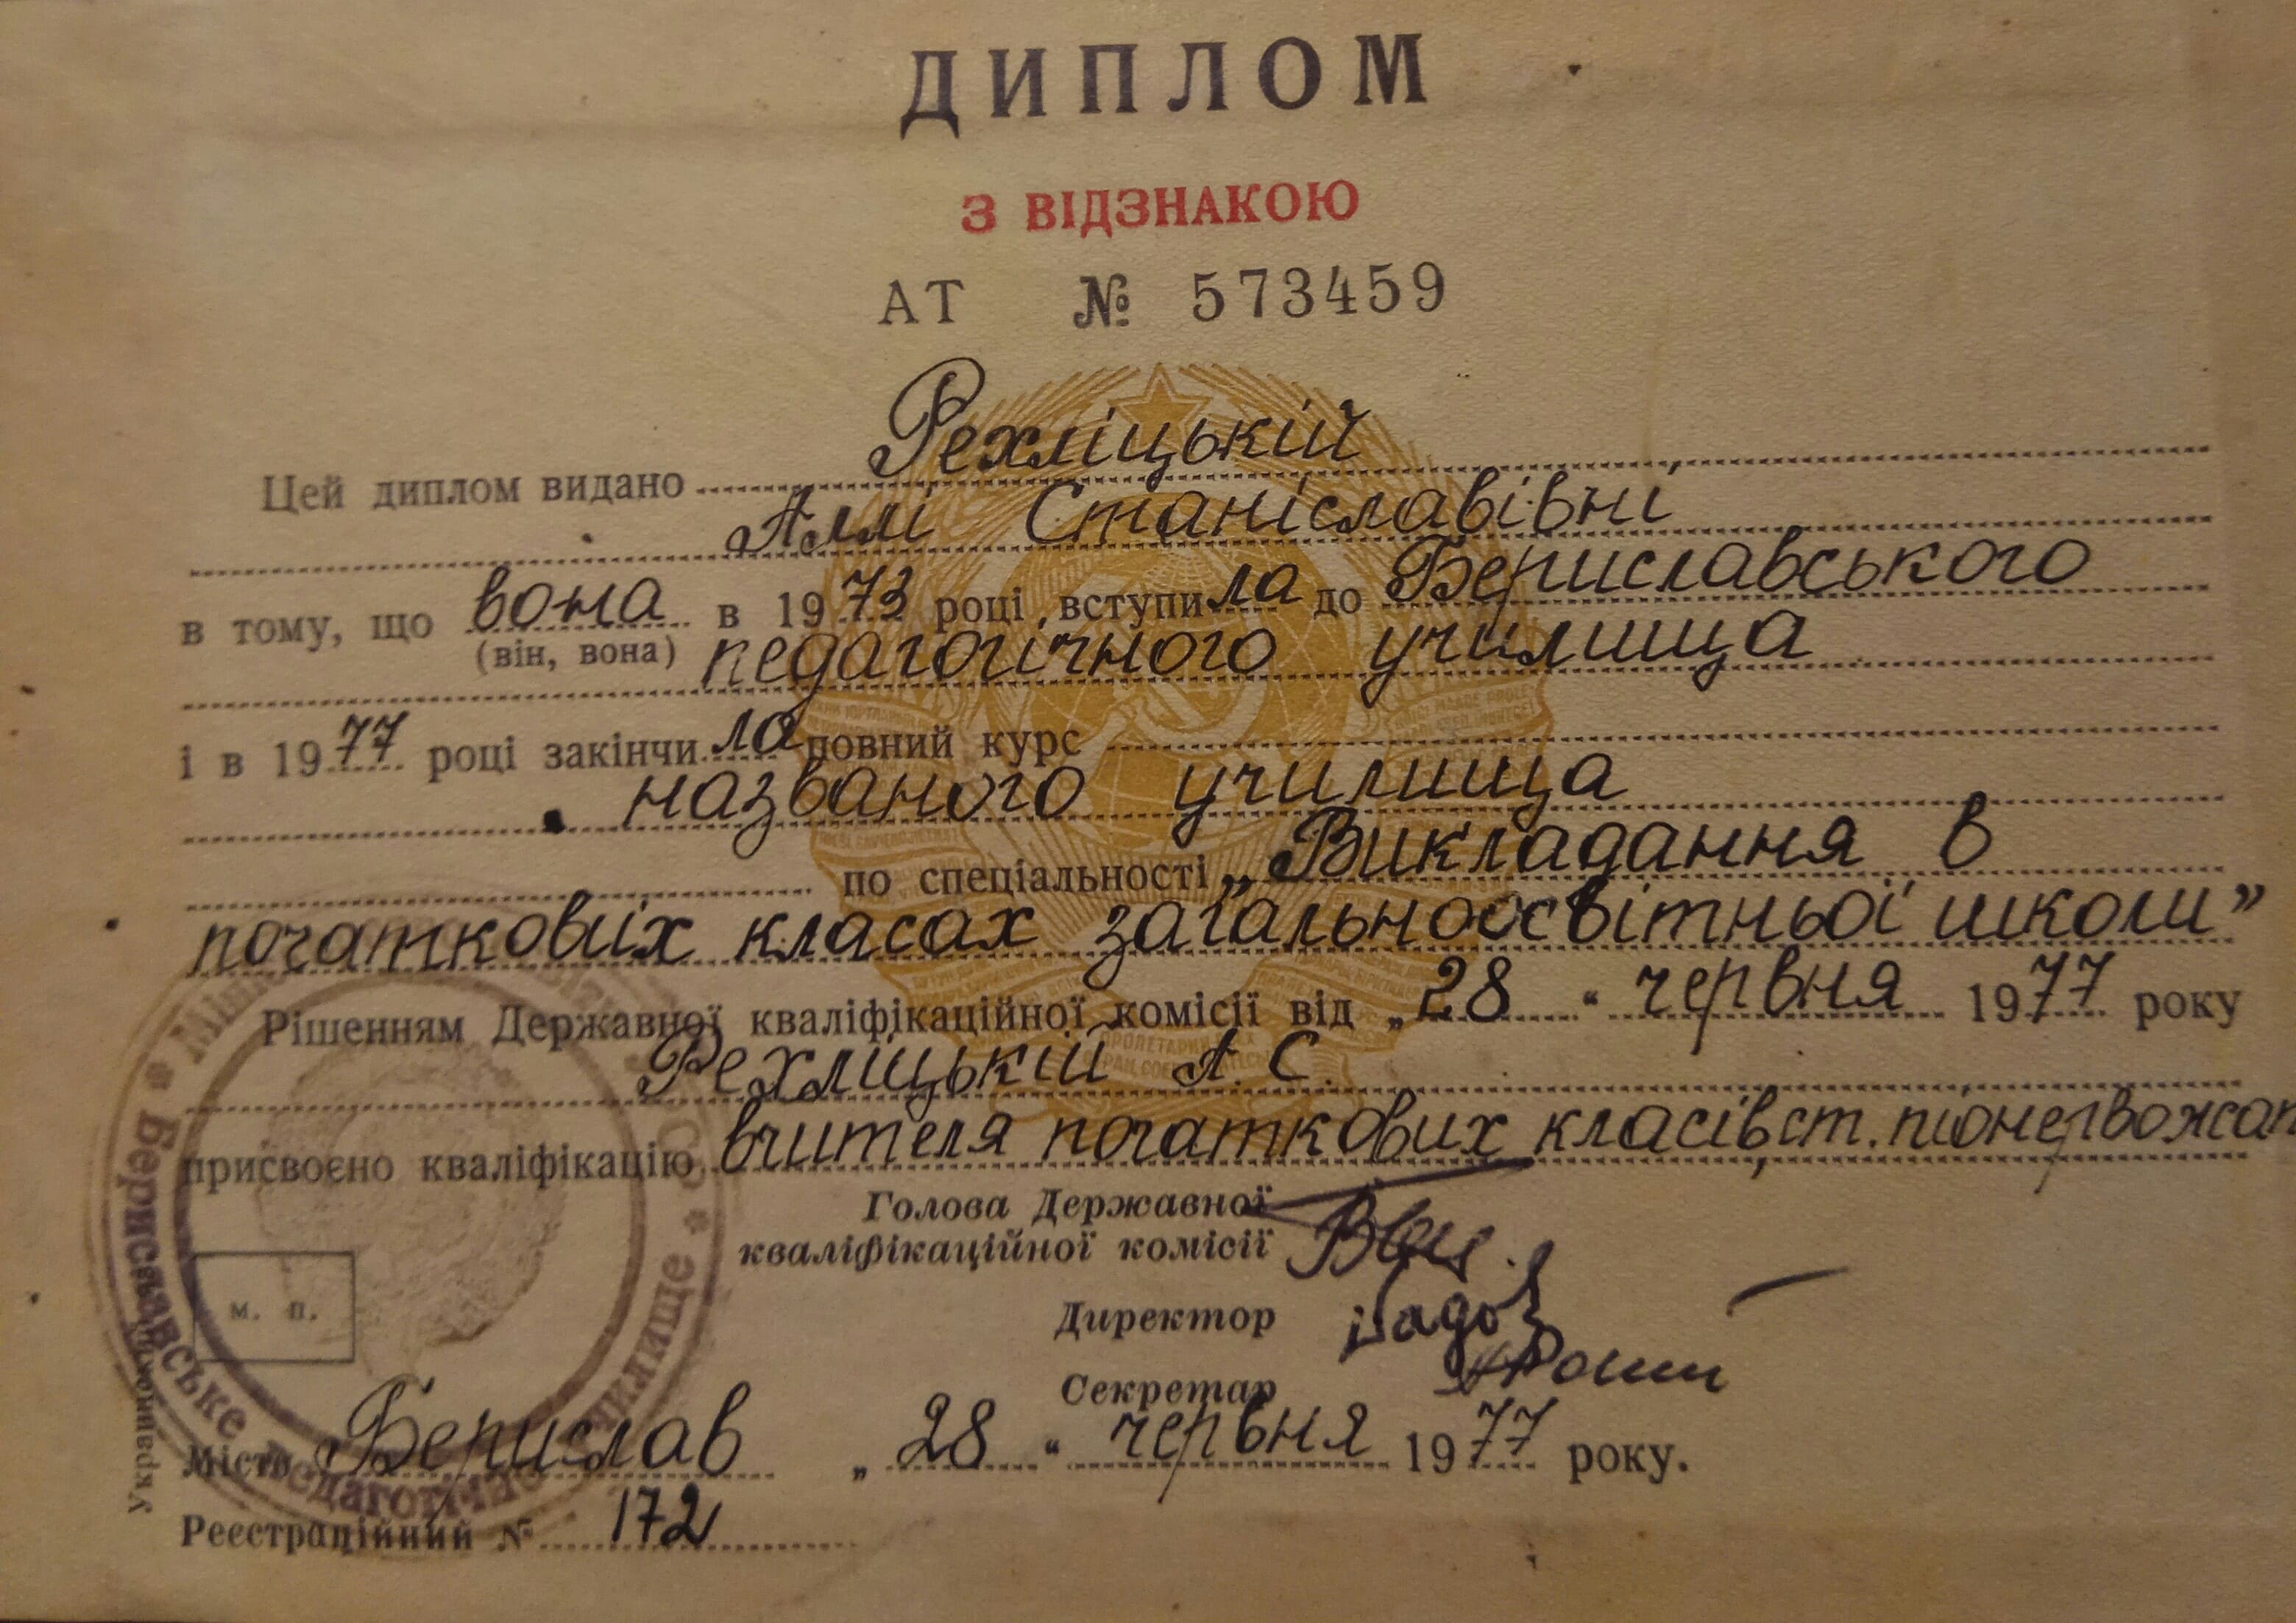 ДИПЛОМ
З ВІДЗНАКОЮ
АТ № 573459
Цей диплом видано Рехліцькій,
Аллі Станіславівні
в тому, що вона в 1973 році вступила до Бериславського
(він, вона) педагогічного училища
і в 1977 році закінчила повний курс
названого училища
по спеціальності „Викладання в
початкових класах загальноосвітньої школи”
Рішенням Державної кваліфікаційної комісії від „28“ червня 1977 року
Рехліцькій А. С.
присвоєно кваліфікацію вчителя початкових класів, ст. піонервожат
Голова Державної
кваліфікаційної комісії
Директор
Секретар
м. п.
Місто Берислав „28“ червня 1977 року.
Реєстраційний № 172
Бериславське педагогічне училище